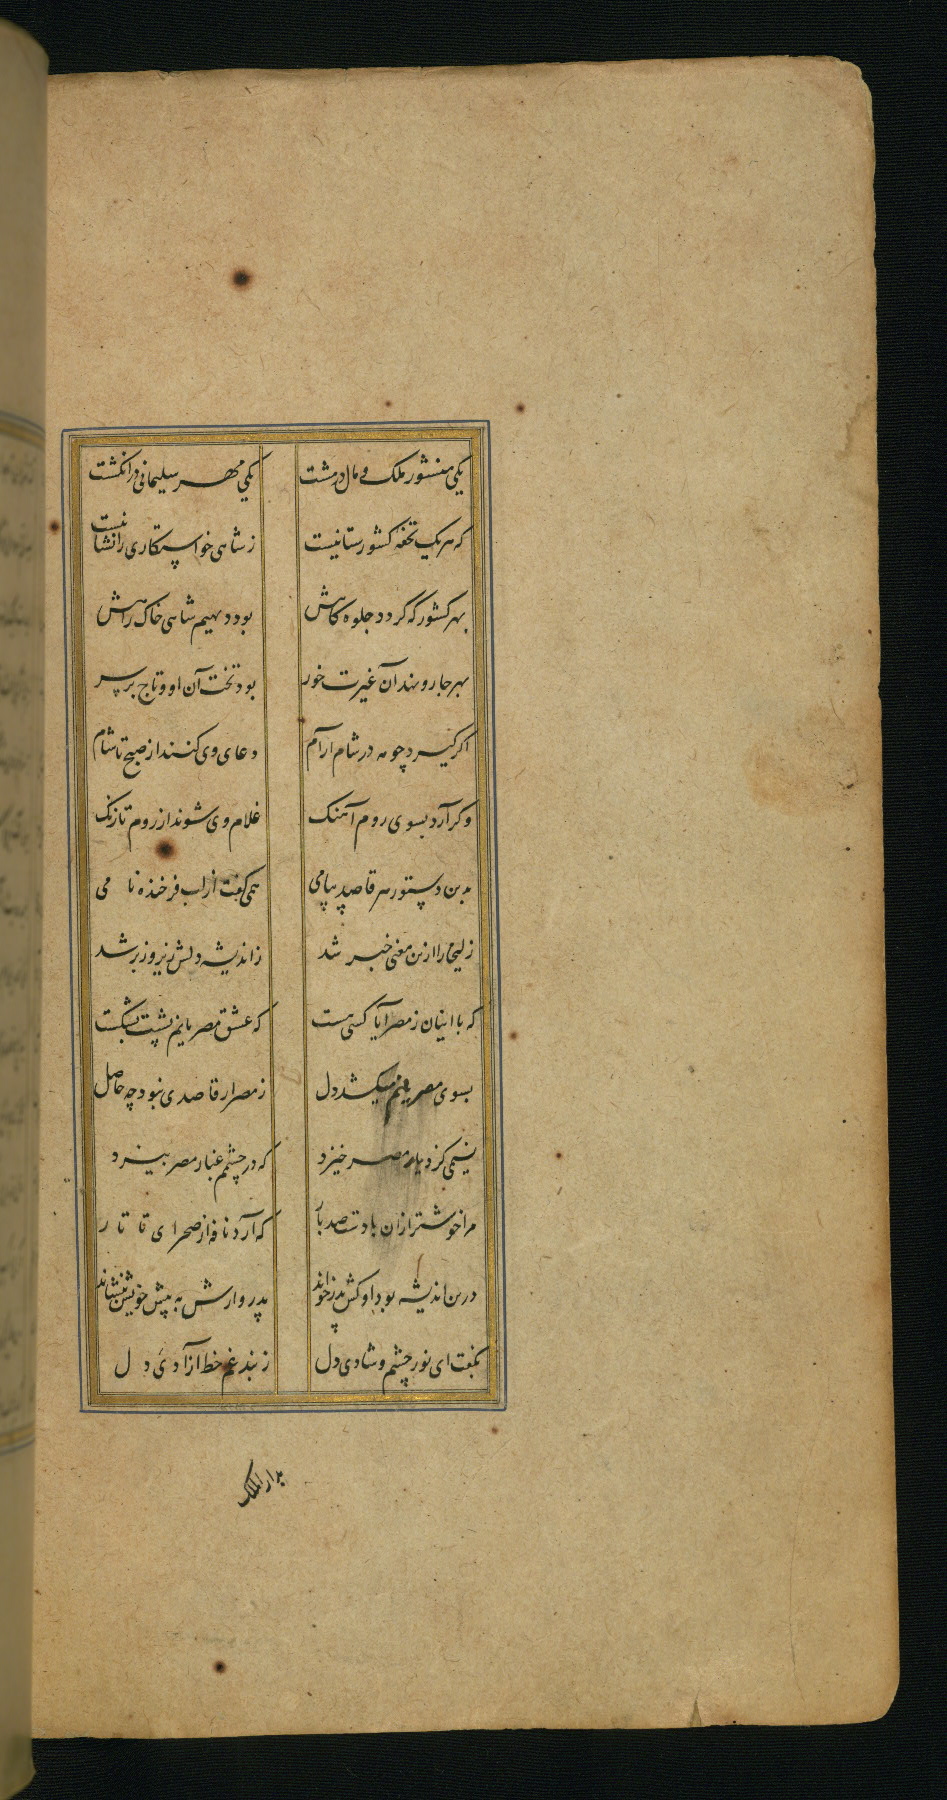 یکی منشور ملک و مال در مشت یکی مهر سلیمانی در انکشت
که هر یک تحفه کشورستانیست ز شاهی خواستکاری را نشانیست
بهر کشور که کردد جلوه کاهش بود دیهیم شاهی خاک راهش
بهر جا رو نهد آن غیرت خور بود تخت آن او و تاج بر سر
اکر کیرد چو مه در شام آرام دعای وی کنند از صبح تا شام
وکر آرد بسوی روم آهنک غلام وی شوند از روم تا زنک
بدین دستور هر قاصد پیامی همی کفت از لب فرخنده نامی
زلیخا را ازین معنی خبر شد ز اندیشه دلش زیر و زبر شد
که با اینان ز مصر آیا کسی هست که عشق مصریانم پشت بشکست
بسوی مصریانم میکشد دل ز مصر ار قاصدی نبود چه حاصل
نسیمی کز دیار مصر خیزد که در چشمم غبار مصر بیزد
مرا خوشتر ازان بادست صد بار که آرد نافه از صحرای تاتار
درین اندیشه بود او کش پدر خواند پدروارش به پیش خویش بنشاند
بکفت ای نور چشم و شادی دل ز بند غم خط آزادی دل
بدار الملک